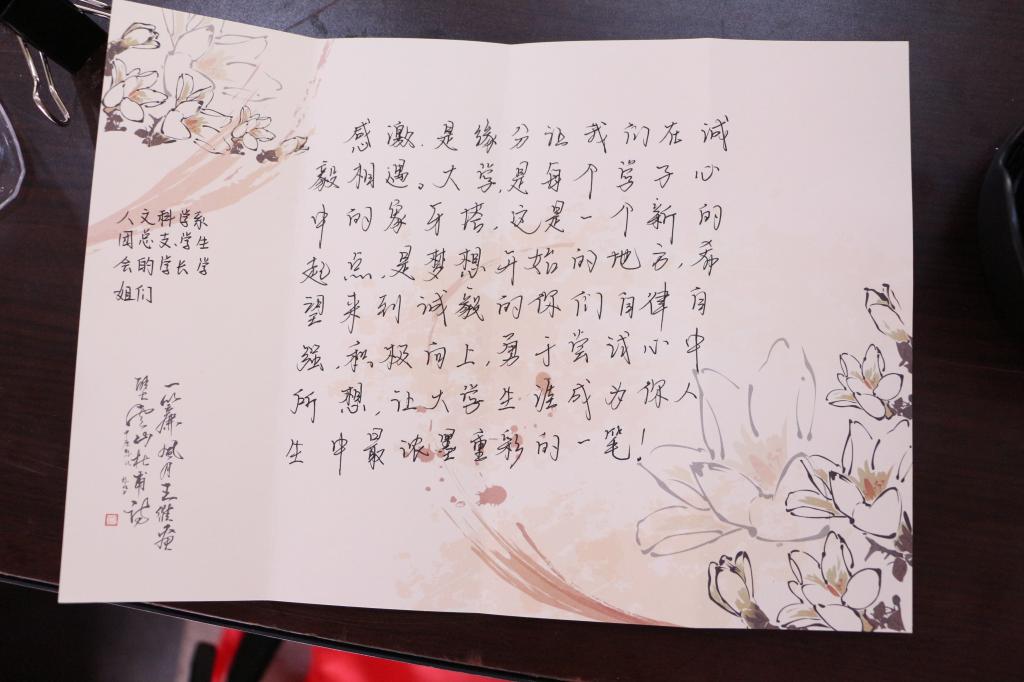 感激.是缘分让我们在诚
毅相遇。大学,是每个学子心
中的象牙塔,这是一个新的
起点,是梦想开始的地方,希
望来到诚毅的你们自律自
强,积极向上,勇于尝试心中
所想,让大学生涯成为你人
生中最浓墨重彩的一笔!
人文科学系
团总支.学生
会的学长学
姐们
一帘风月王维画
四壁云山杜甫诗